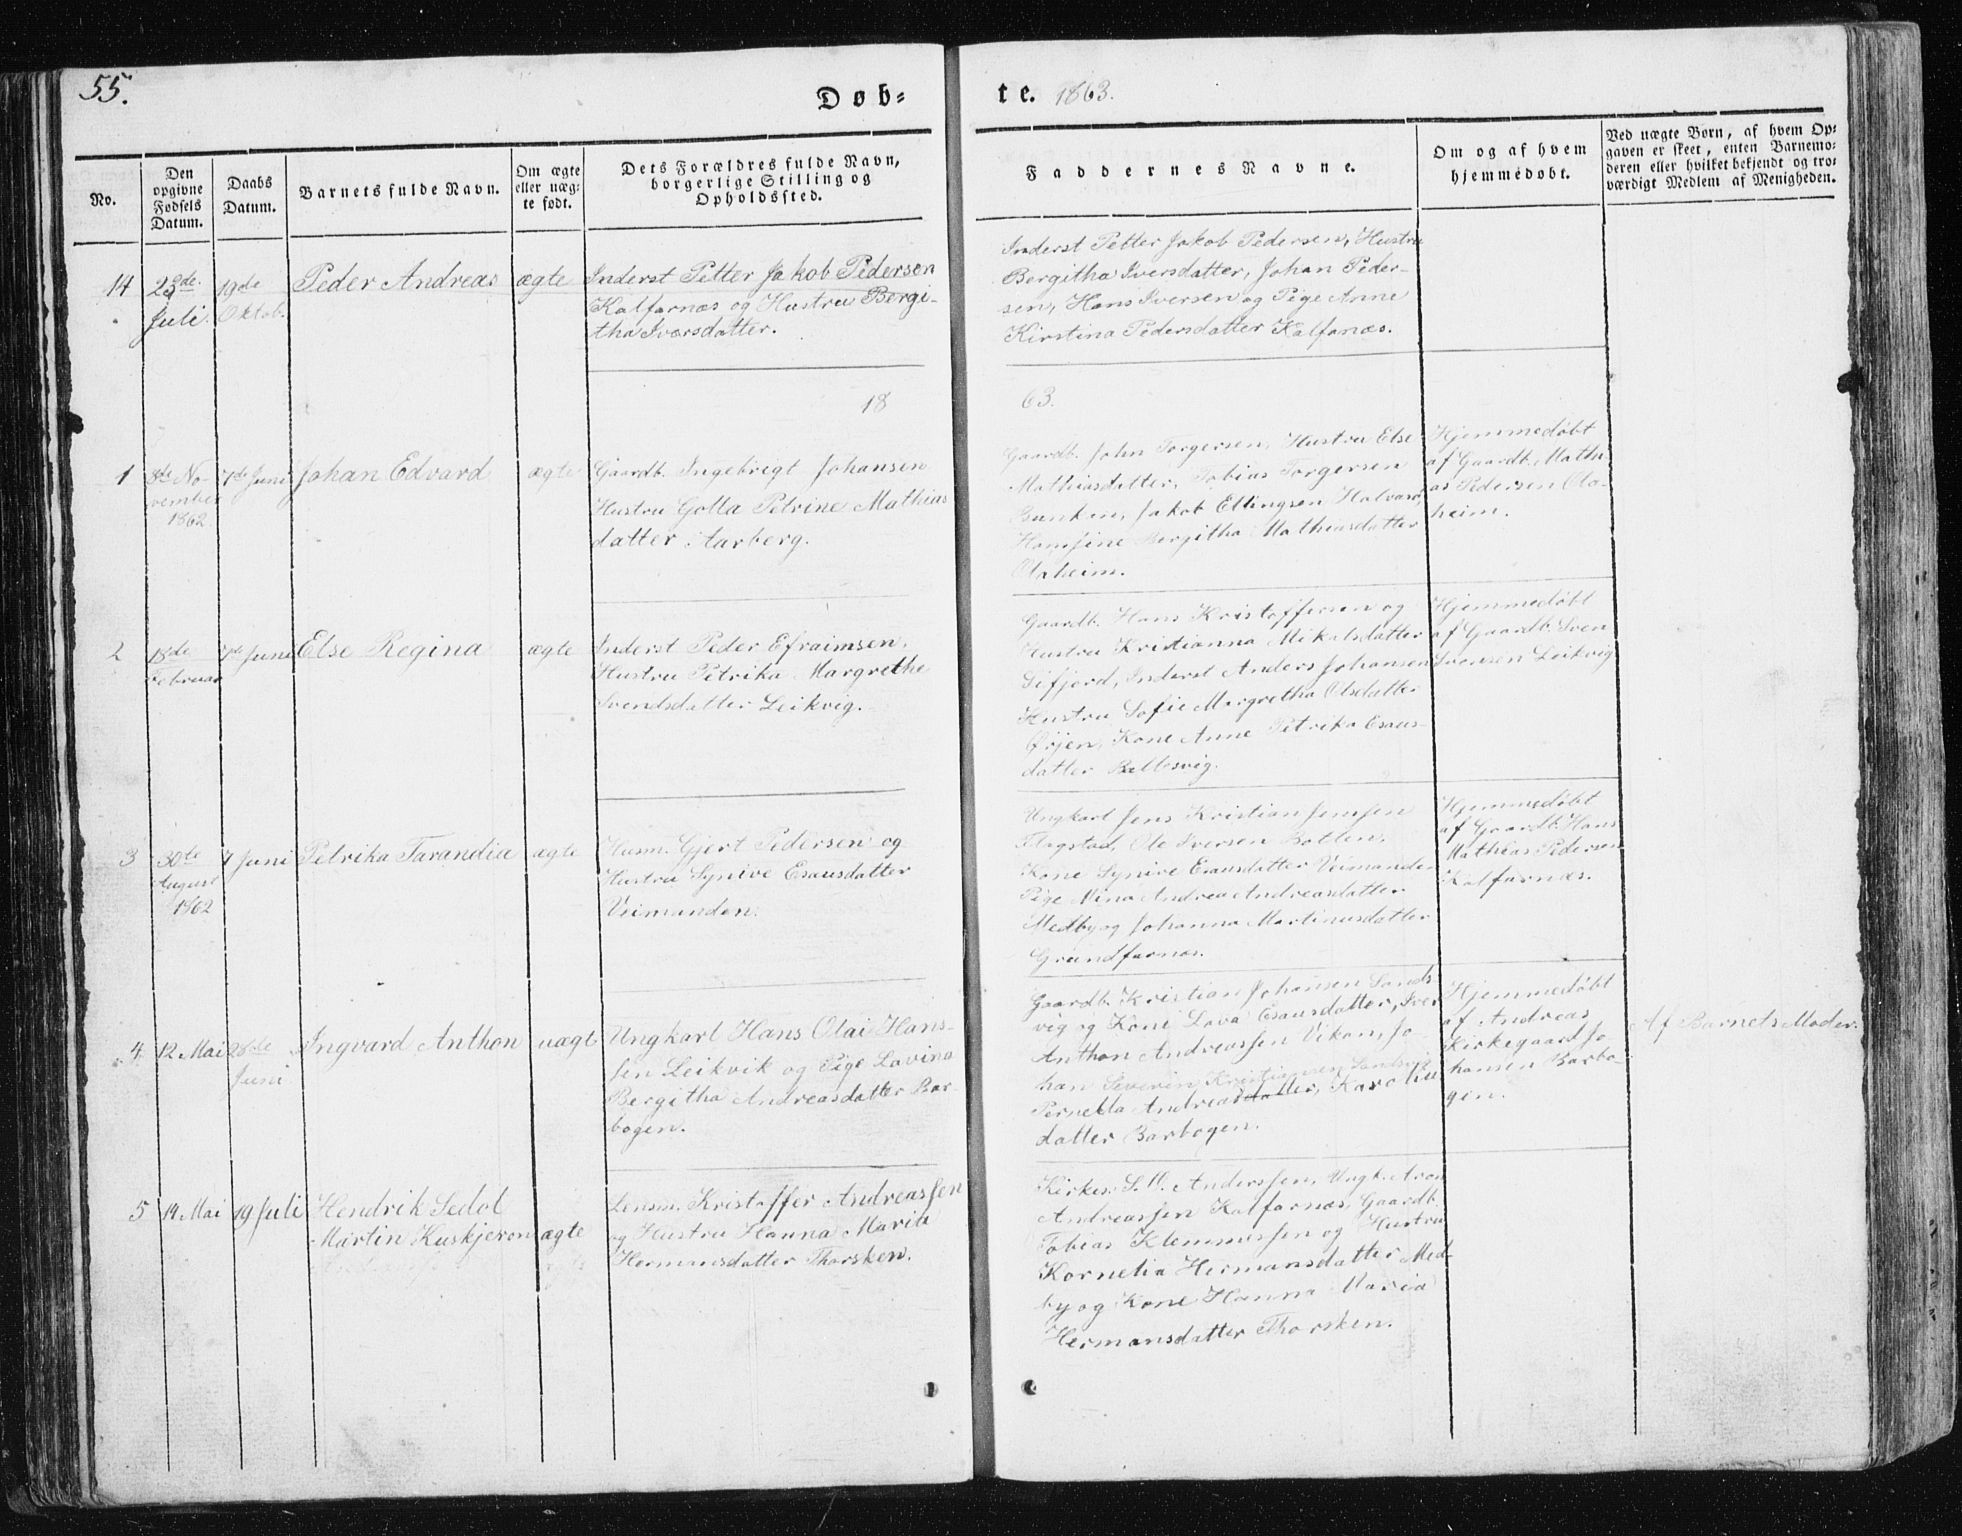 55.
Døb=
te. 1863.
No.
Den
opgivne
Fødsels
Datum.
Daabs
Datum.
Barnets fulde Navn.
Om ægte
eller uæg=
te født.
Dets Forældres fulde Navn,
borgerlige Stilling og
Opholdssted.
Faddernes Navne.
Om og af hvem
hjemmedøbt.
Ved uægte Børn, af hvem Op=
gaven er skeet, enten Barnemo=
deren eller hvilket bekjendt og tro=
værdigt Medlem af Menigheden.
14
Juli.
19de
Oktob.
Peder Andreas
ægte
Inderst Petter Jakob Pedersen
Kalfarnæs og Hustru Bergi-
tha Iversdatter.
Inderst Petter Jakob Pedersen, Hustru
Bergitha Iversdatter, Johan Peder-
sen, Hans Iversen og Pige Anne
Kirstina Pedersdatter Kalfanæs.
18
63.
1
8de No-
vember
1862
7de Juni
Johan Edvard
ægte
Gaardb. Ingebrigt Johansen
Hustru Golla Petrine Mathias
datter Aarberg.
Gaardb. John Torgersen, Hustru Else
Mathiasdatter, Tobias Torgersen
Bunken, Jakob Ellingsen
Bergitha Mathiasdatter
Olaheim.
Hjemmedøbt
af Gaardb. Mathi-
as Pedersen Ola-
heim.
2
18de
Februar
7de Juni
Else Regina
ægte
Inderst Peder Efraimsen,
Hustru Petrika Margrethe
Svendsdatter Leikvig.
Gaardb. Hans Kristoffersen og
Hustru Kristianna Mikalsdatter
Gifjord, Inderst Anders Johansen
Hustru Sofie Margretha Olsdatter
Ørjen, Kone Anne Petrika Esaus-
datter Ballesvig.
Hjemmedøbt
af Gaardb. Sven
Ivarsen Leikvig
3
30te
August
1862
7 Juni
Petrika Tarandia
ægte
Husm. Gjert Pedersen og
Hustru Synive Esausdatter
Veimanden.
Ungkarl Jens Kristian Jenssen
Flagstad, Ole Iversen Botten,
Kone Synive Esausdatter Veimanden
Pige Mina Andrea Andreasdatter
Medby og Johanna Martinusdatter
Grundfarnæs.
Hjemmedøbt
af Gaardb. Hans
Mathias Pedersen
Kalfarnæs.
4
12 Mai
28de
Juni
Ingvard Anthon
uægt
Ungkarl Hans Olai Hans-
sen Leikvik og Pige Lovina
Bergitha Andreasdatter Bar-
bogen.
Gaardb. Kristian Johansen Sands
vig og Kone Lova Esausdatter, Iver
Anthon Andreassen Vikan, Jo-
han Severin Kristiansen Sandsvig
Pernella Andreasdatter, Karolin
datter Barbogen.
Hjemmedøbt
af Andreas
Kirkegaard Jo-
hansen Barbo-
gen.
Af Barnets Moder.
5
14 Mai
19 Juli
Hendrik Sedol
Martin Kuskjeron
ægte
Lensm. Kristoffer Andreassen
og Hustru Hanna Maria
Hermansdatter Thorsken.
Kirkes. S. A. Anderssen, Ungk. Aron
Andreassen Kalfarnæs, Gaardb.
Tobias Klemmessen og Hustru
Kornelia Hermansdatter Med-
by og Kone Hanna Maria
Hermansdatter Thorsken.